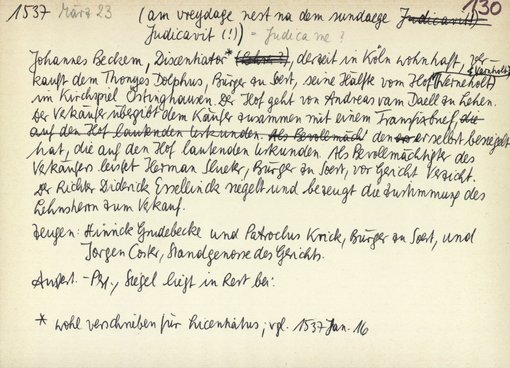 1537 März 23 (am vreydage nest na dem sundaege Judicavit) 130
Judicavit (!)) = Judica me ?
Johannes Beckem, Discentiator* (Lehrer?), derzeit in Köln wohnhaft, ver-
kauft dem Thonyes Dolphus, Bürger zu Soest, seine Hälfte vom Hof Kerneholt
im Kirchspiel Ostinghausen. Der Hof geht von Andreas vam Daell zu Lehen.
Der Verkäufer übergibt dem Käufer zusammen mit einem Transfixbrief, die
auf den Hof lautenden Urkunden. Als Bevollmäch den er er selbst besiegelt
hat, die auf den Hof lautenden Urkunden. Als Bevollmächtigter des
Verkäufers leistet Herman Sluter, Bürger zu Soest, vor Gericht Verzicht.
Der Richter Diderick Esselinck siegelt und bezeugt die Zustimmung des
Lehnsherrn zum Verkauf.
Zeugen: Hinrick Grudebecke und Patroclus Krick, Bürger zu Soest, und
Jorgen Coster, Standgenosse des Gerichts.
Ausfert. - Pg., Siegel liegt in Rest bei.
* wohl verschrieben für Licentiatus; vgl. 1537 Jan. 16